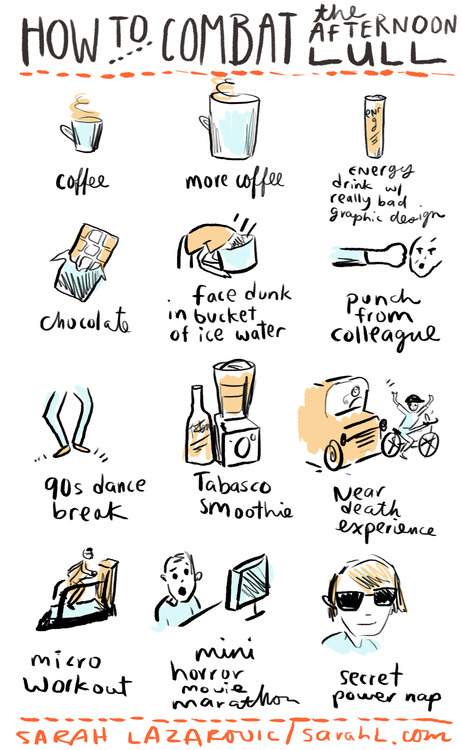 HOW TO COMBAT the AFTERNOON LULL
coffee
more coffee
energy
drink w/
really bad
graphic design
chocolate
face dunk
in bucket
of ice water
punch
from
colleague
90s dance
break
Tabasco
smoothie
Near
death
experience
micro
workout
mini
horror
movie
marathon
secret
power nap
SARAH LAZAROVIC/sarahL.com